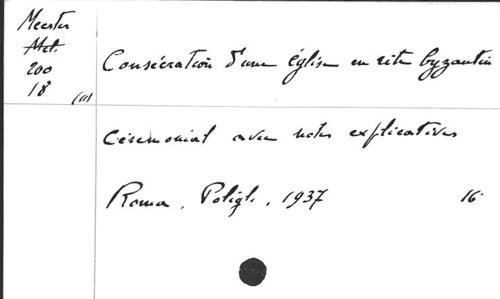 Meester
Met.
200
18 (11)
Consécration d'une église en rite byzantin
Cérémonial avec notes explicatives
Roma, Poligl., 1937 16°